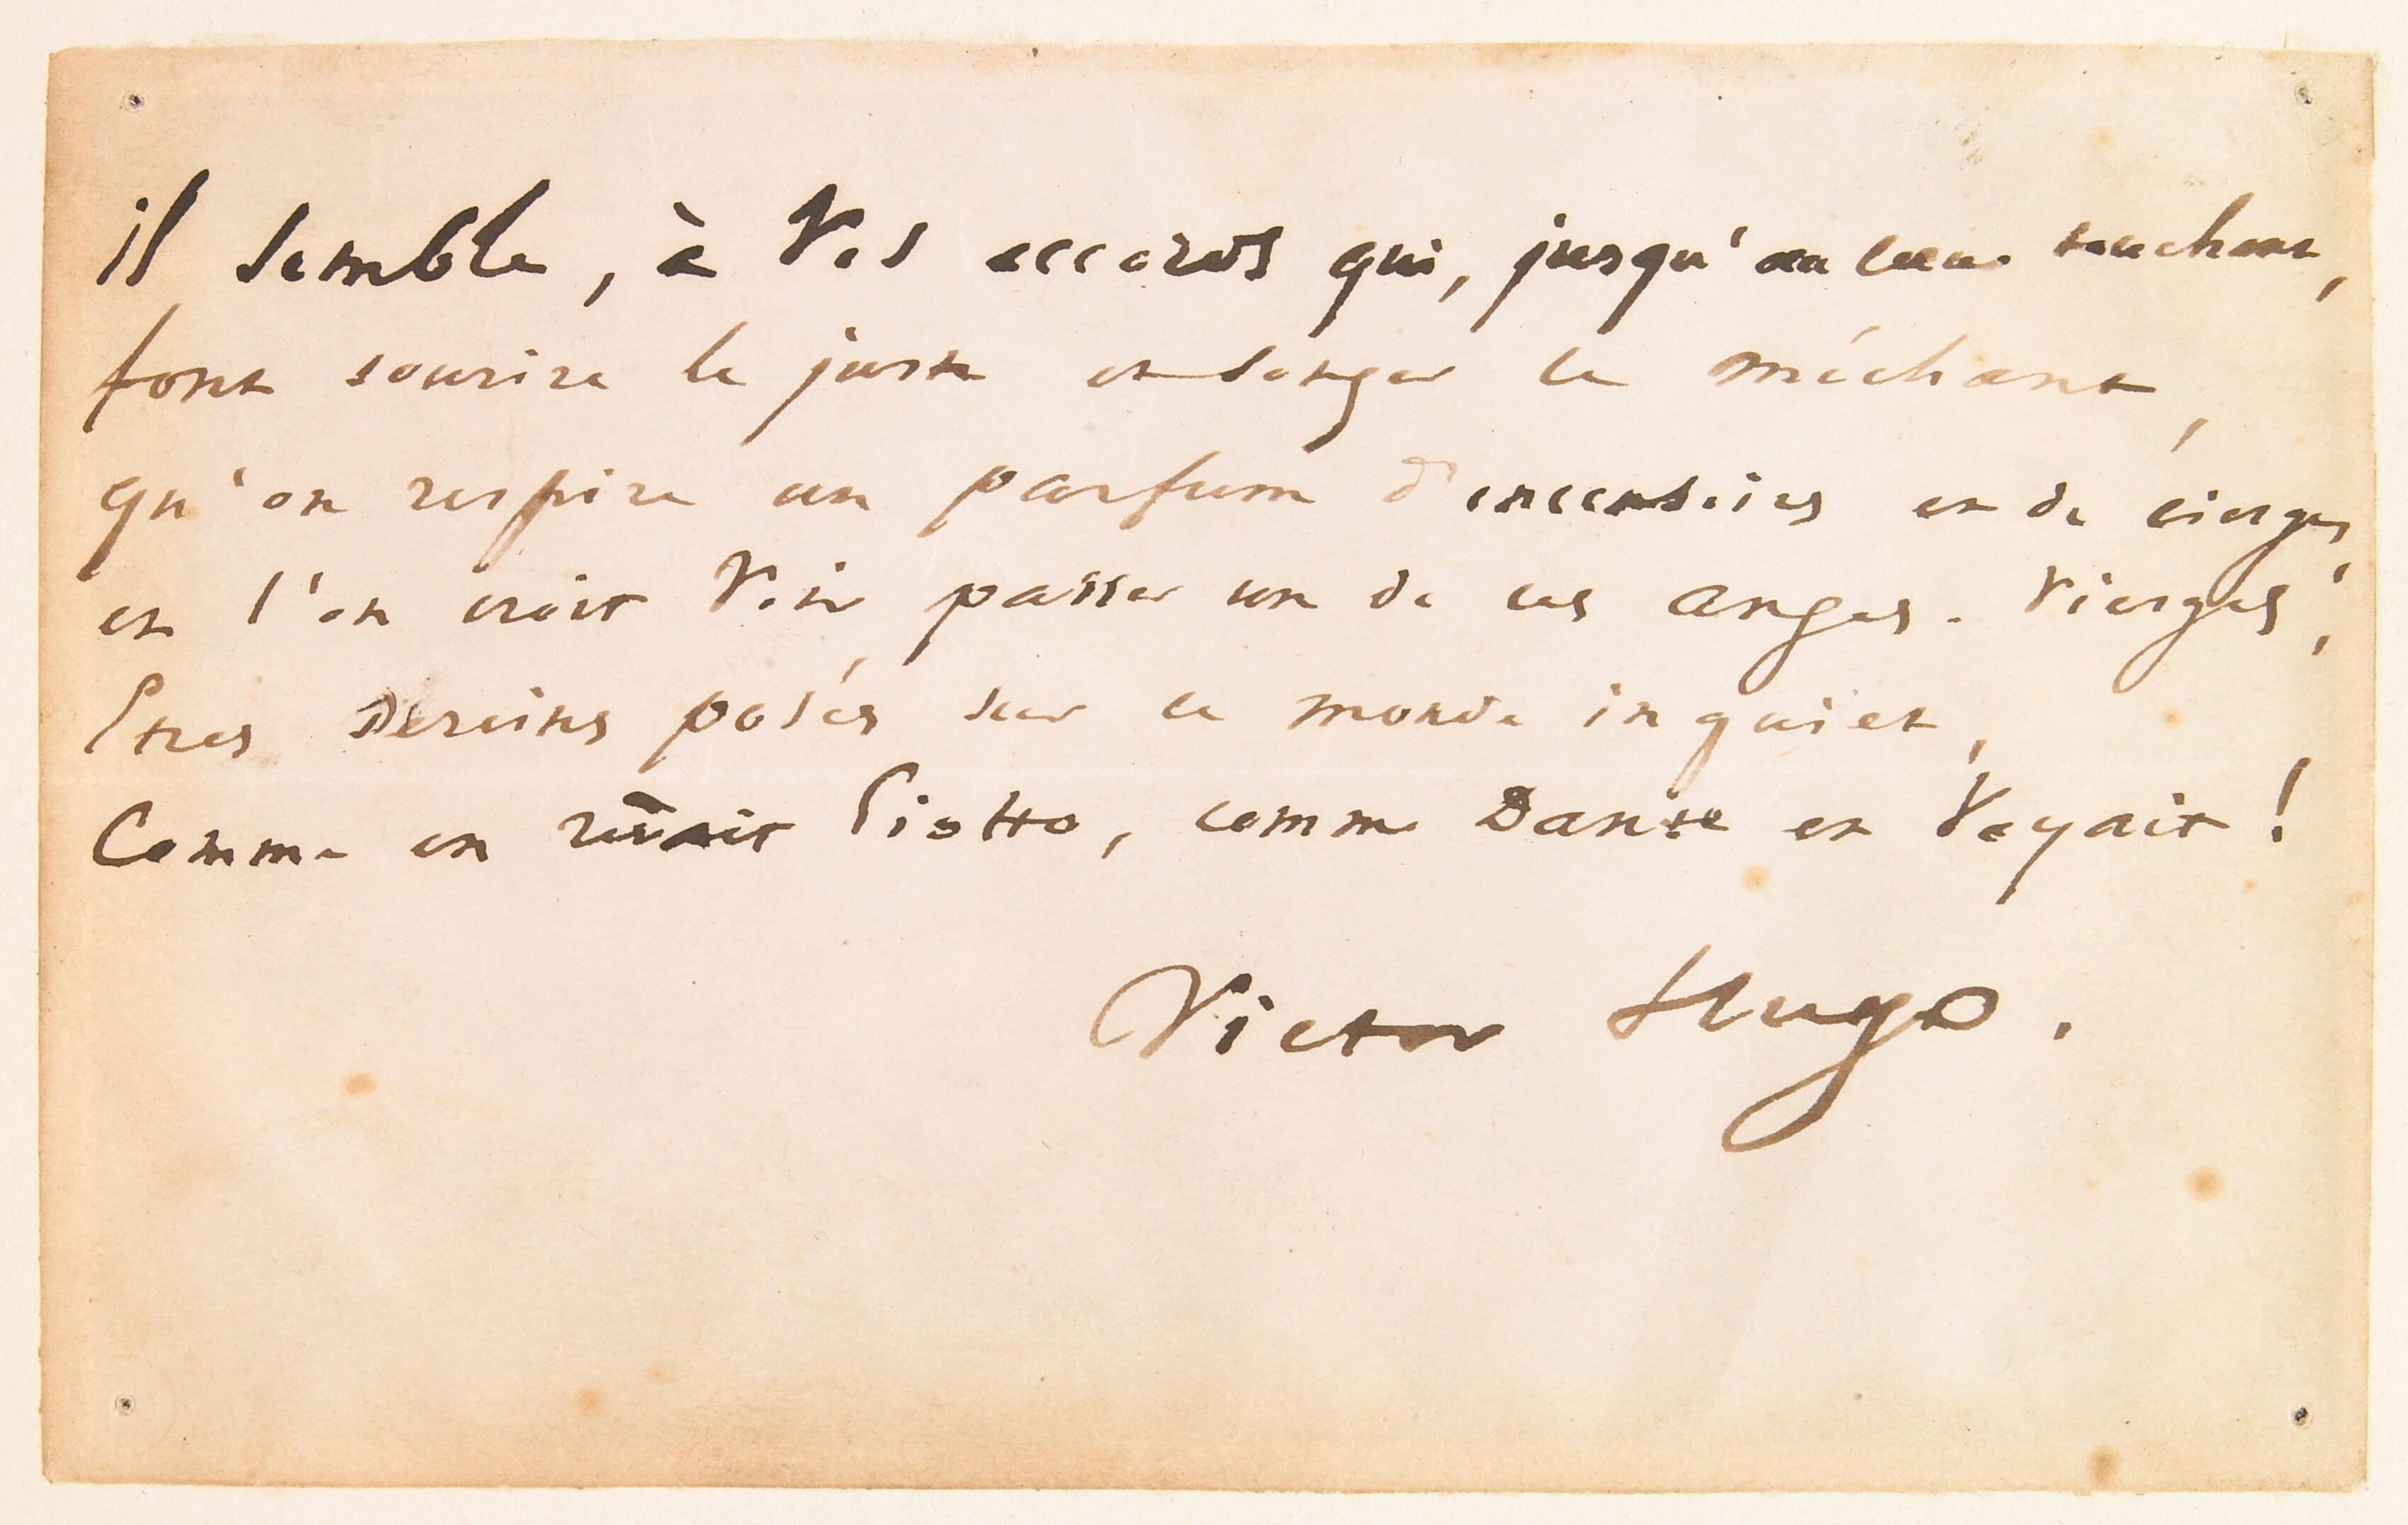 il semble, à vos accords qui, jusqu'au cœur touchant,
font sourire le juste et songer le méchant,
qu'on respire un parfum d'encensoirs et de cierges,
et l'on croit voir passer un de ces anges-vierges,
Êtres sereins posés sur ce monde inquiet,
Comme en rêvait Giotto, comme Dante en voyait !
Victor Hugo.